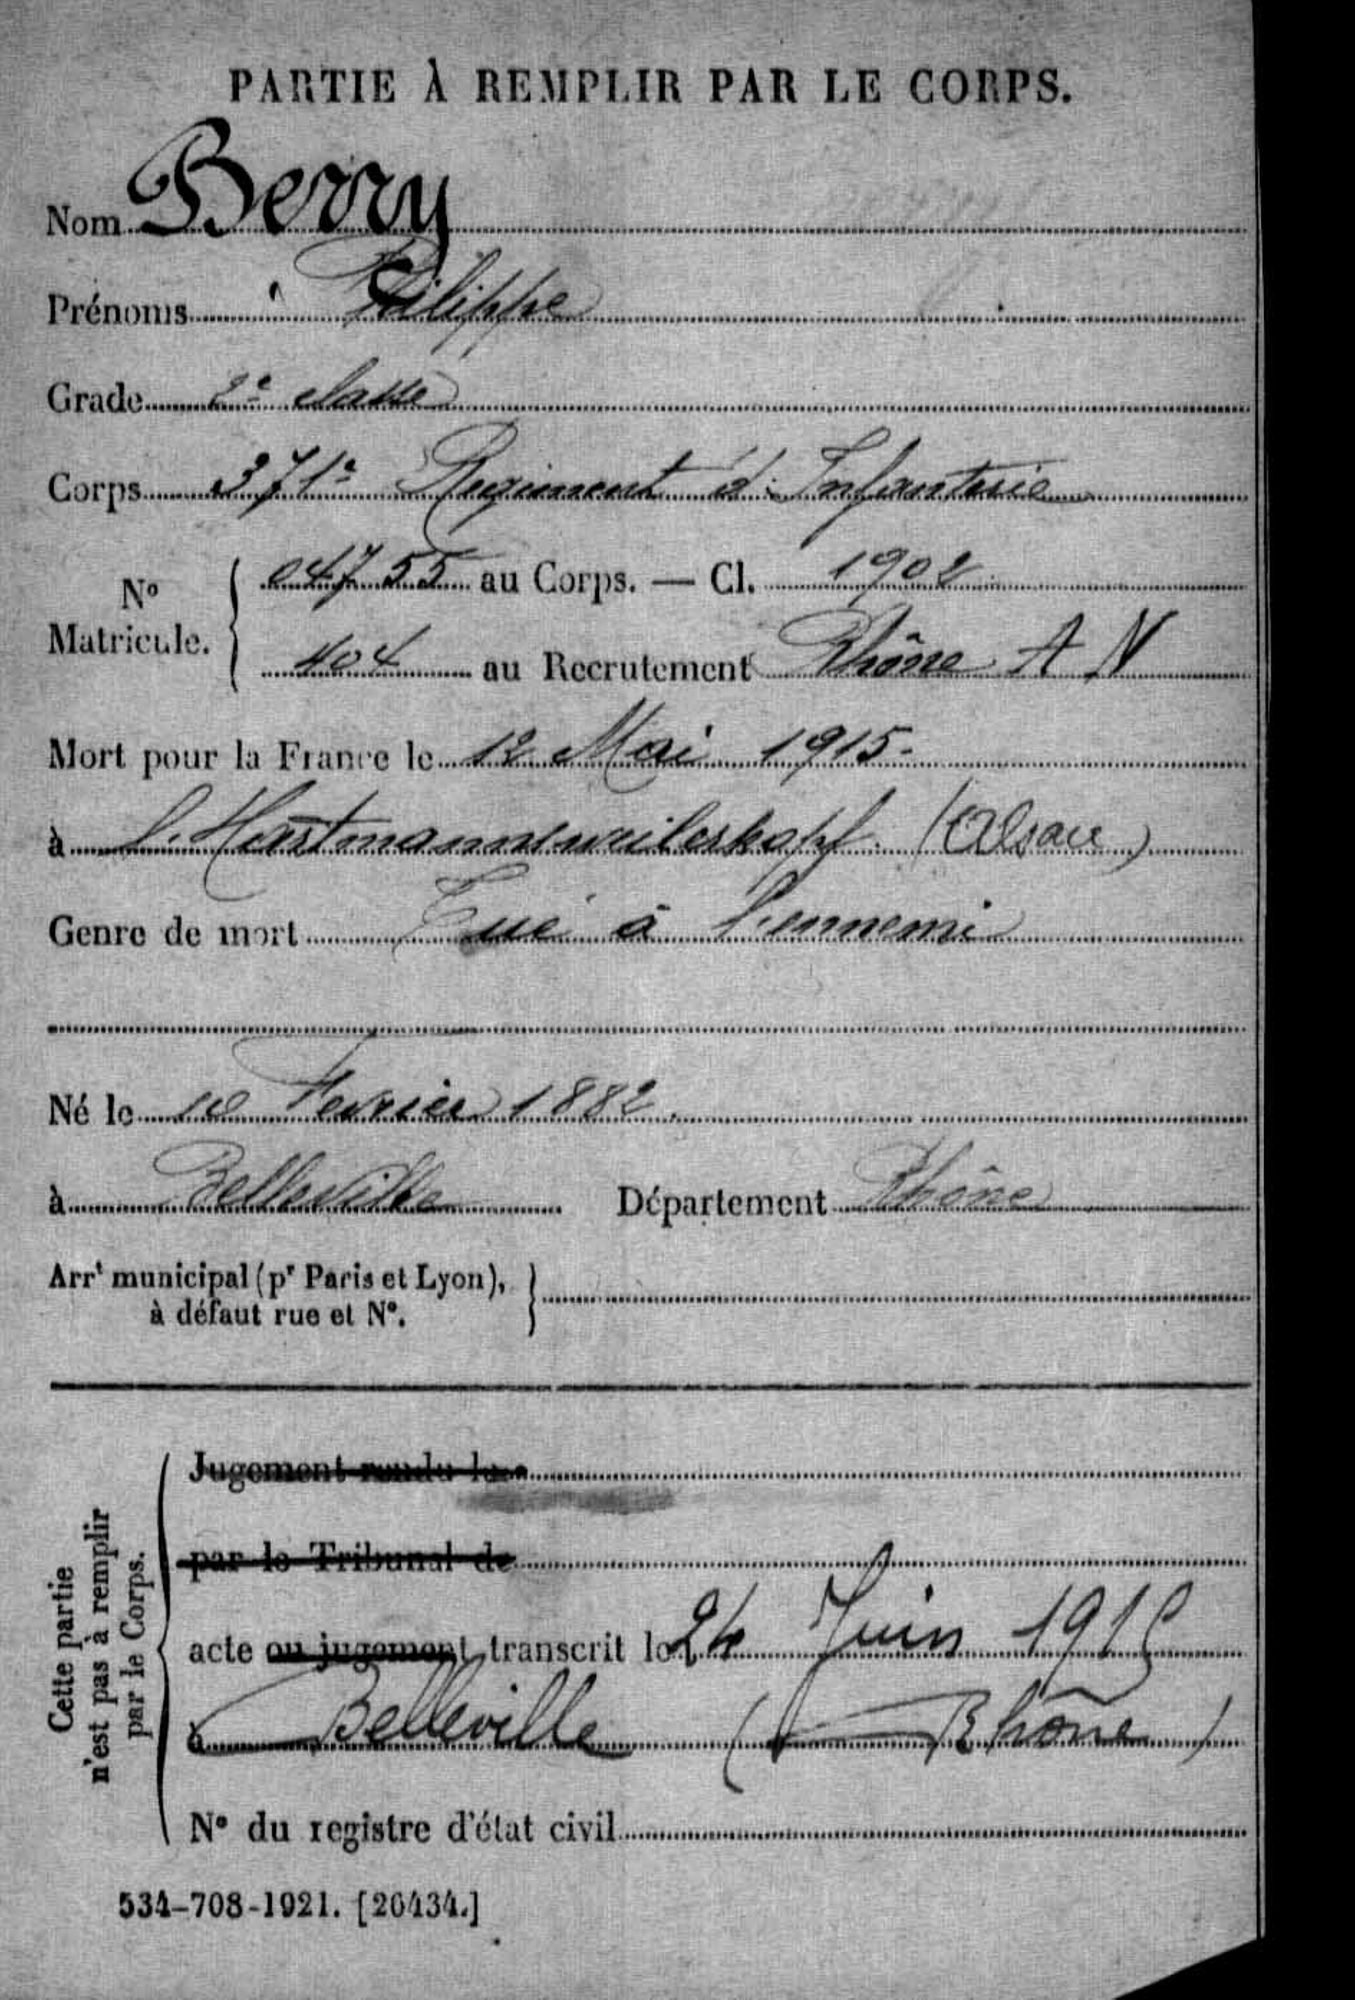 PARTIE À REMPLIR PAR LE CORPS.
Nom Berry
Prénoms Philippe
Grade 2e classe
Corps 371e Régiment d'Infanterie
No Matricule. { 04755 au Corps. — Cl. 1902
404 au Recrutement Rhône A N
Mort pour la France le 12 Mai 1915
à l'Hartmannsweilerkopf (Alsace)
Genre de mort Tué à l'ennemi
Né le 10 Février 1882
à Belleville Département Rhône
Arrt municipal (pr Paris et Lyon),
à défaut rue et No.
Cette partie
n'est pas à remplir
par le Corps.
Jugement rendu le
par le Tribunal de
acte ou jugement transcrit le 24 Juin 1915
à Belleville (Rhône)
No du registre d'état civil
534-708-1921. [26434.]